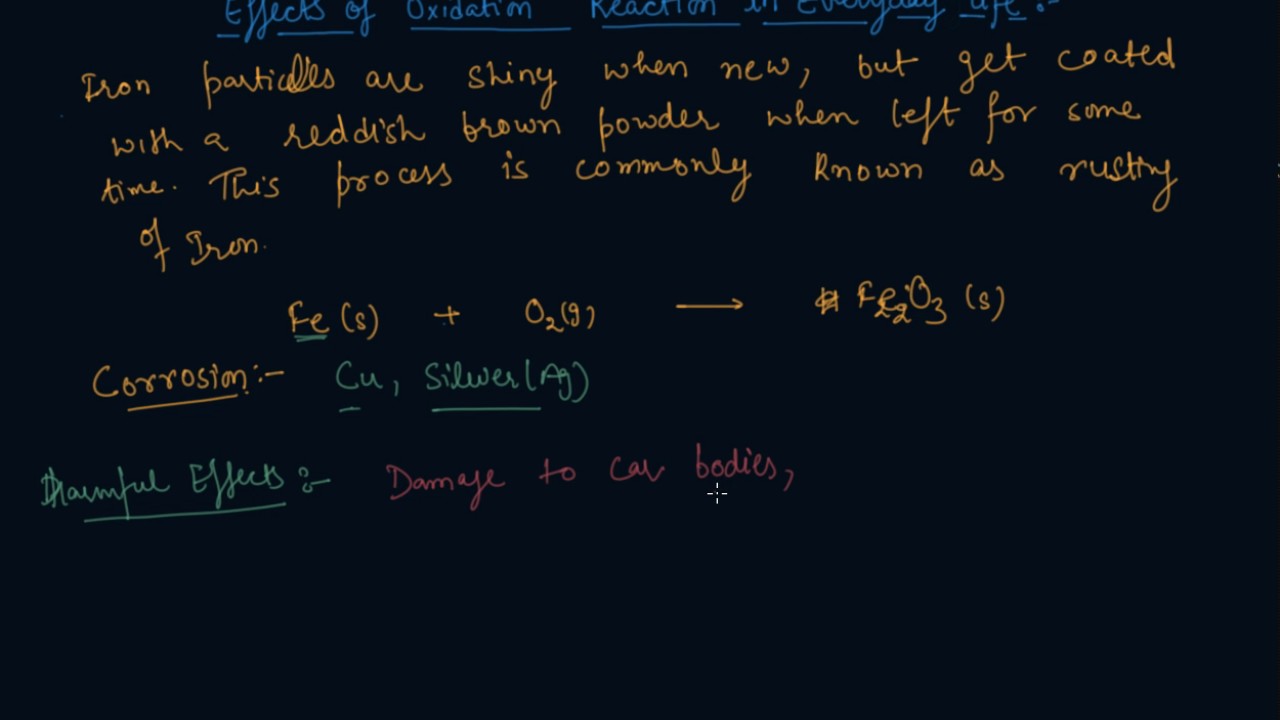 Effects of Oxidation Reaction in Everyday Life :-
Iron particles are shiny when new, but get coated
with a reddish brown powder when left for some
time. This process is commonly known as rusting
of Iron.
Fe(s) + O₂(g) ⟶ Fe₂O₃ (s)
Corrosion :- Cu, Silver(Ag)
Harmful Effects :- Damage to car bodies,